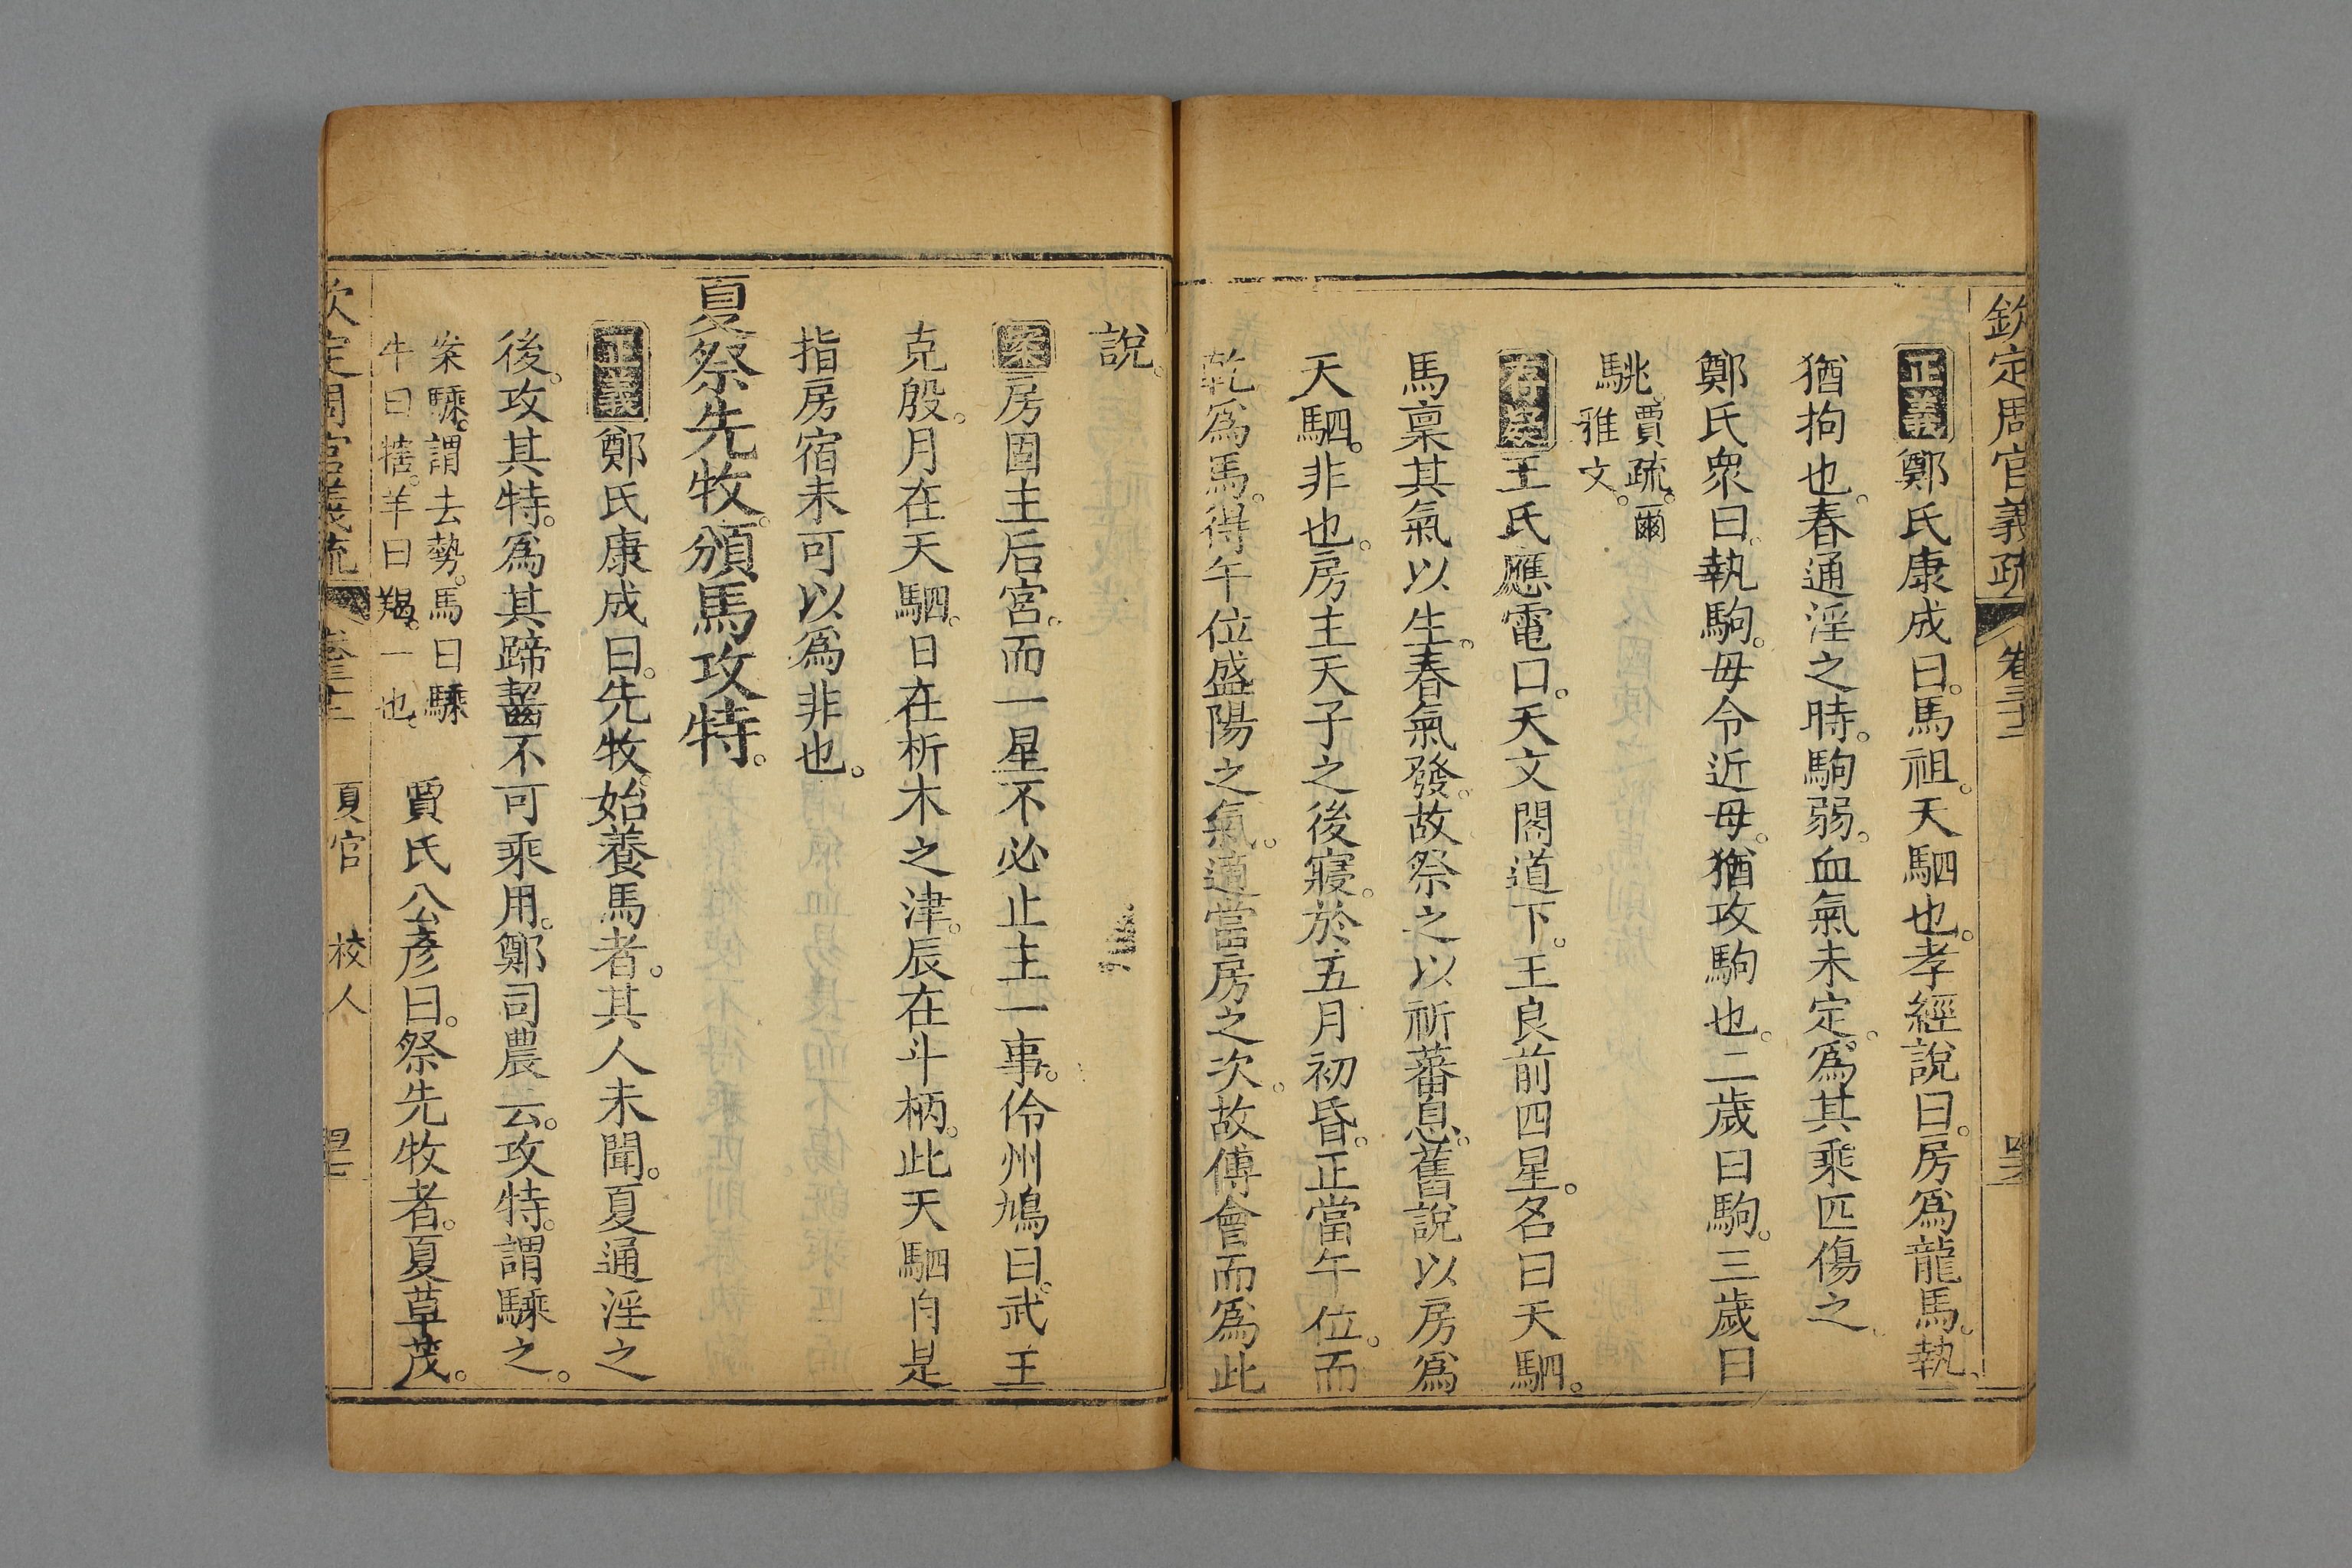 欽定周官義疏 卷三十二
正義鄭氏康成曰。馬祖。天駟也。孝經說曰。房爲龍馬。執。
猶拘也。春通淫之時。駒弱。血氣未定。爲其乘匹傷之。
鄭氏衆曰。執駒。毋令近母。猶攻駒也。二歲曰駒。三歲曰
駣。賈疏。爾
雅文。
存疑王氏應電曰。天文閣道下。王良前四星。名曰天駟。
馬稟其氣以生。春氣發。故祭之以祈蕃息。舊說以房爲
天駟。非也。房主天子之後寢。於五月初昏。正當午位。而
乾爲馬。得午位盛陽之氣。適當房之次。故傅會而爲此
說。
案房固主后宮。而一星不必止主一事。伶州鳩曰。武王
克殷。月在天駟。日在析木之津。辰在斗柄。此天駟自是
指房宿未可以爲非也。
夏祭先牧。頒馬攻特。
正義鄭氏康成曰。先牧。始養馬者。其人未聞。夏通淫之
後。攻其特。爲其蹄齧不可乘用。鄭司農云。攻特。謂騬之。
案騬。謂去勢。馬曰騬
牛曰犗。羊曰羯。一也。
賈氏公彥曰。祭先牧者。夏草茂。
欽定周官義疏 卷三十二 夏官 校人